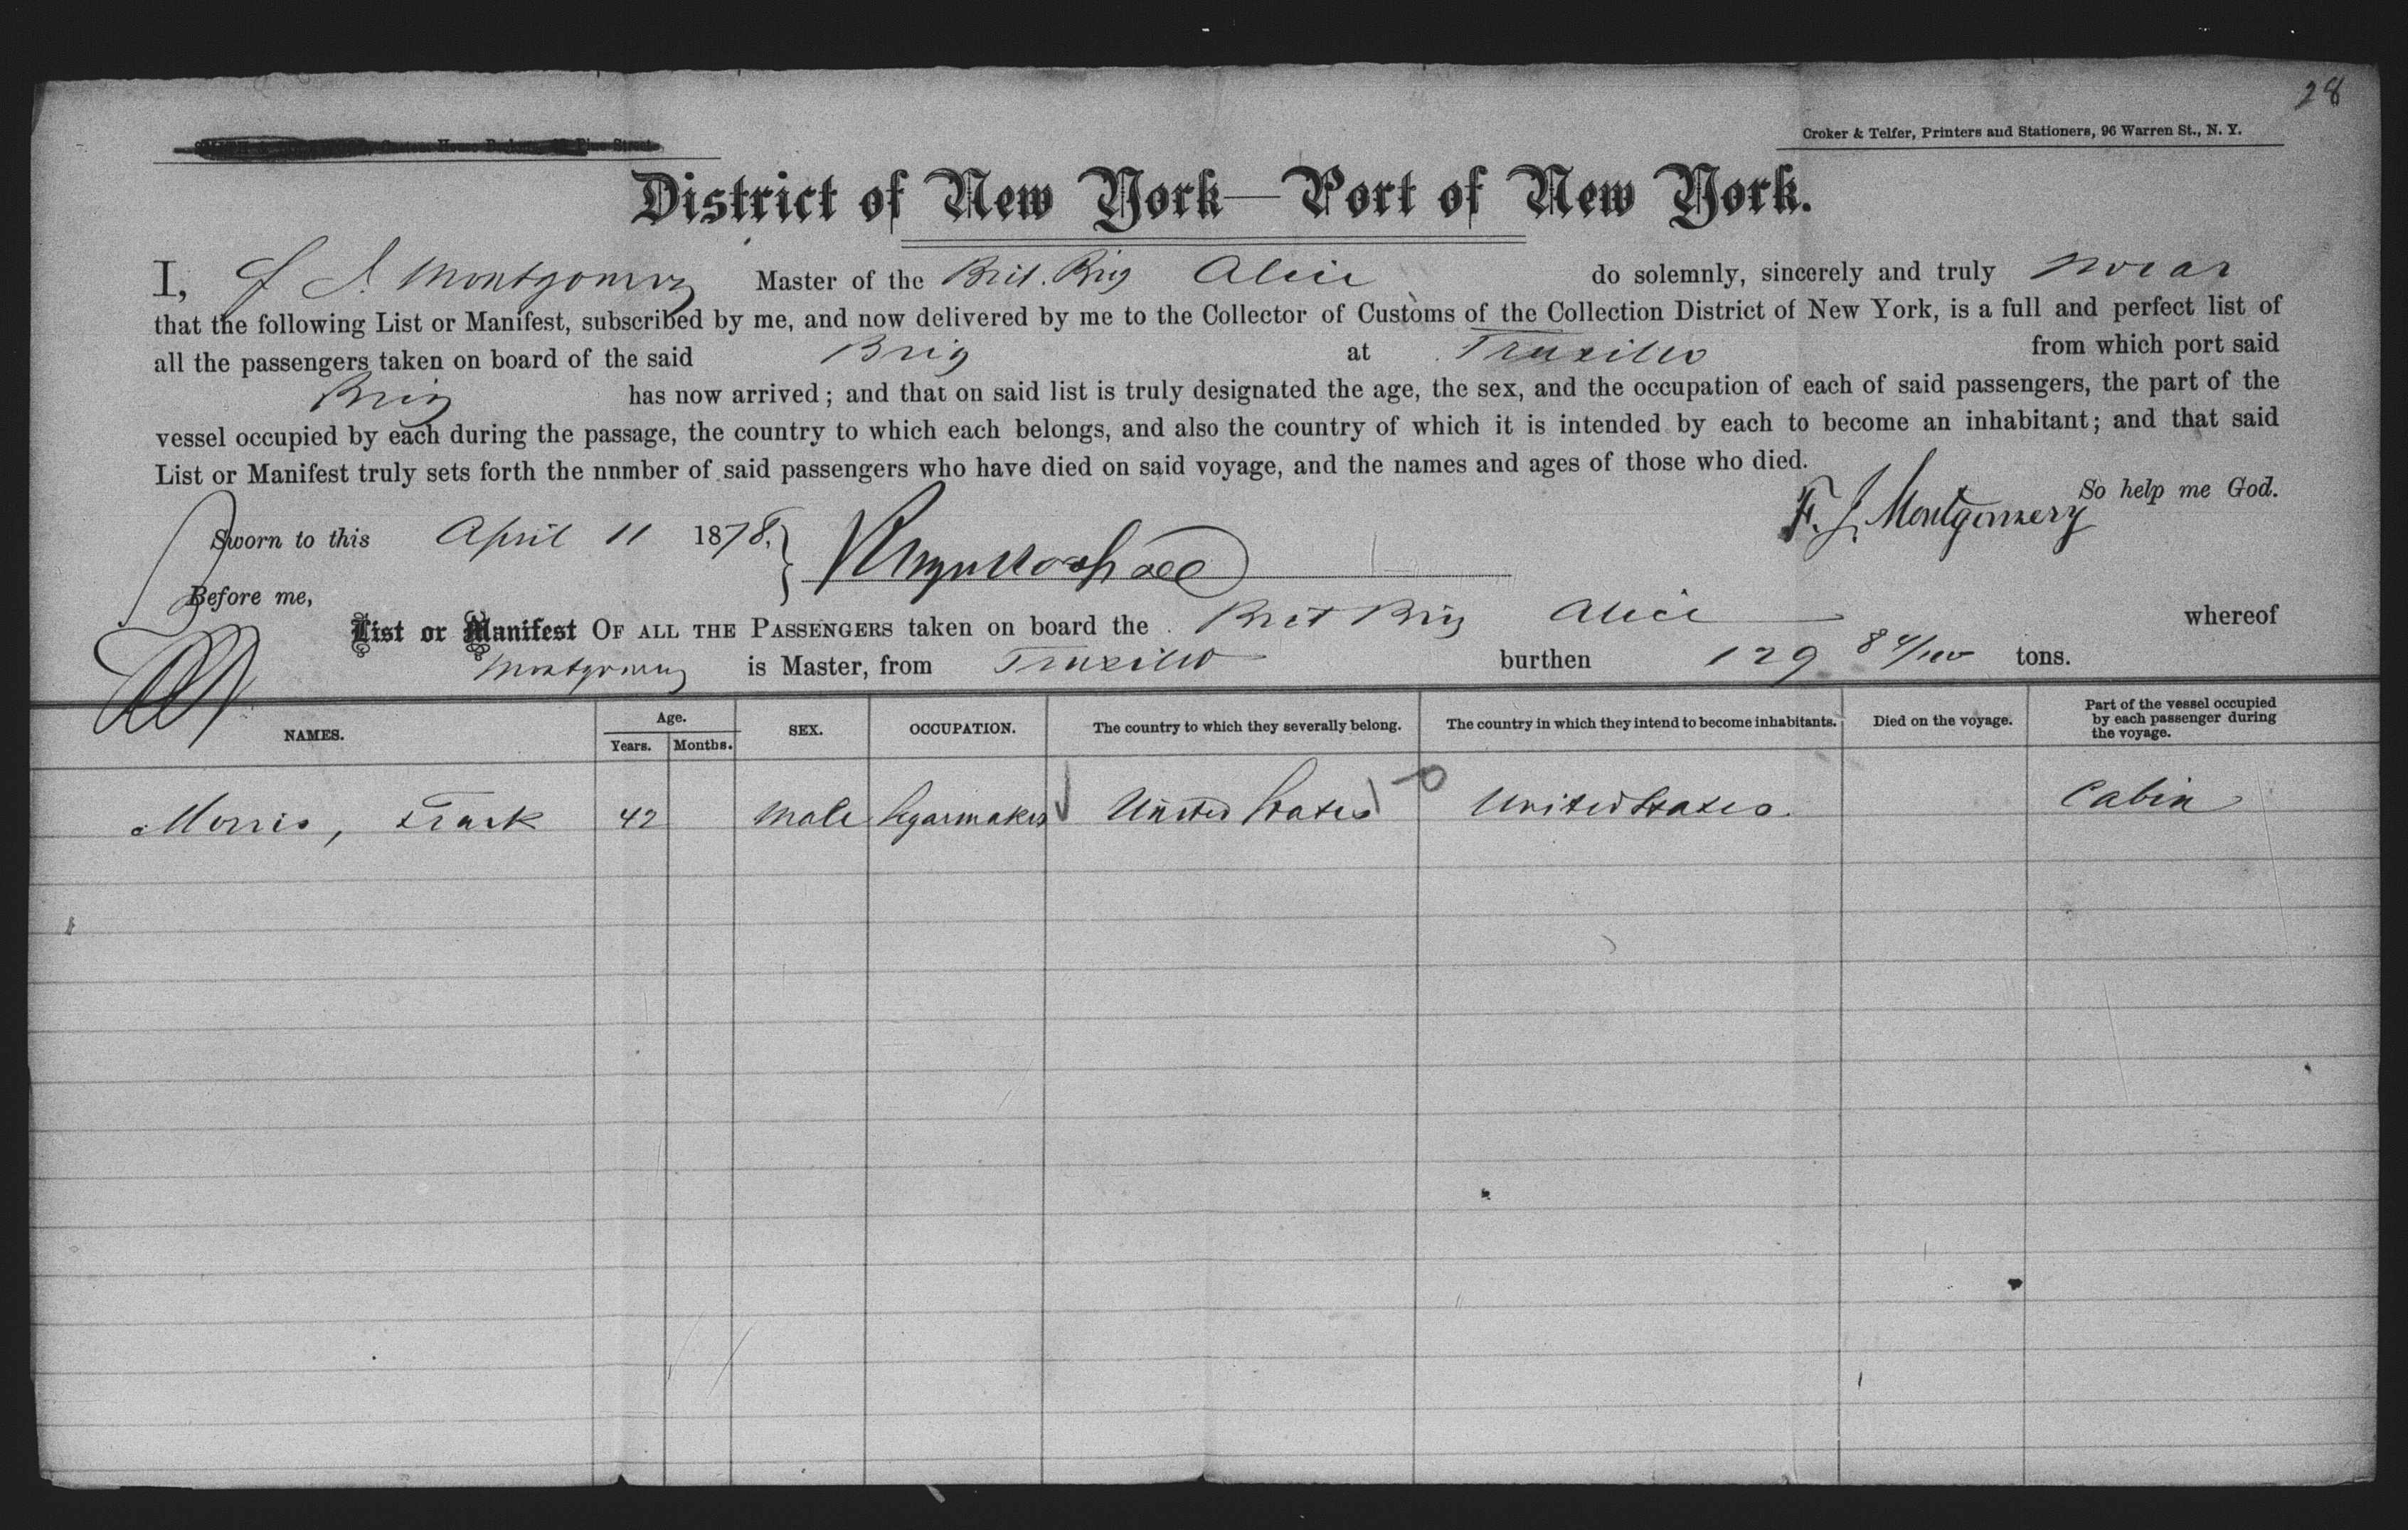 28
Croker & Telfer, Printers and Stationers, 96 Warren St., N. Y.
Custom House Pine Street
District of New York—Port of New York.
I, F J. Montgomery Master of the Brit. Brig Alice do solemnly, sincerely and truly swear
that the following List or Manifest, subscribed by me, and now delivered by me to the Collector of Customs of the Collection District of New York, is a full and perfect list of
all the passengers taken on board of the said Brig at Truxillo from which port said
Brig has now arrived; and that on said list is truly designated the age, the sex, and the occupation of each of said passengers, the part of the
vessel occupied by each during the passage, the country to which each belongs, and also the country of which it is intended by each to become an inhabitant; and that said
List or Manifest truly sets forth the nnmber of said passengers who have died on said voyage, and the names and ages of those who died.
So help me God.
F. J. Montgomery
Sworn to this April 11 1878.
Before me,
List or Manifest OF ALL THE PASSENGERS taken on board the Brit Brig Alice whereof
Montgomery is Master, from Truxillo burthen 129 84/100 tons.
NAMES. Age. Years. Months. SEX. OCCUPATION. The country to which they severally belong. The country in which they intend to become inhabitants. Died on the voyage. Part of the vessel occupied by each passenger during the voyage.
Morris, Frank 42 Male Segarmaker United States United States. Cabin